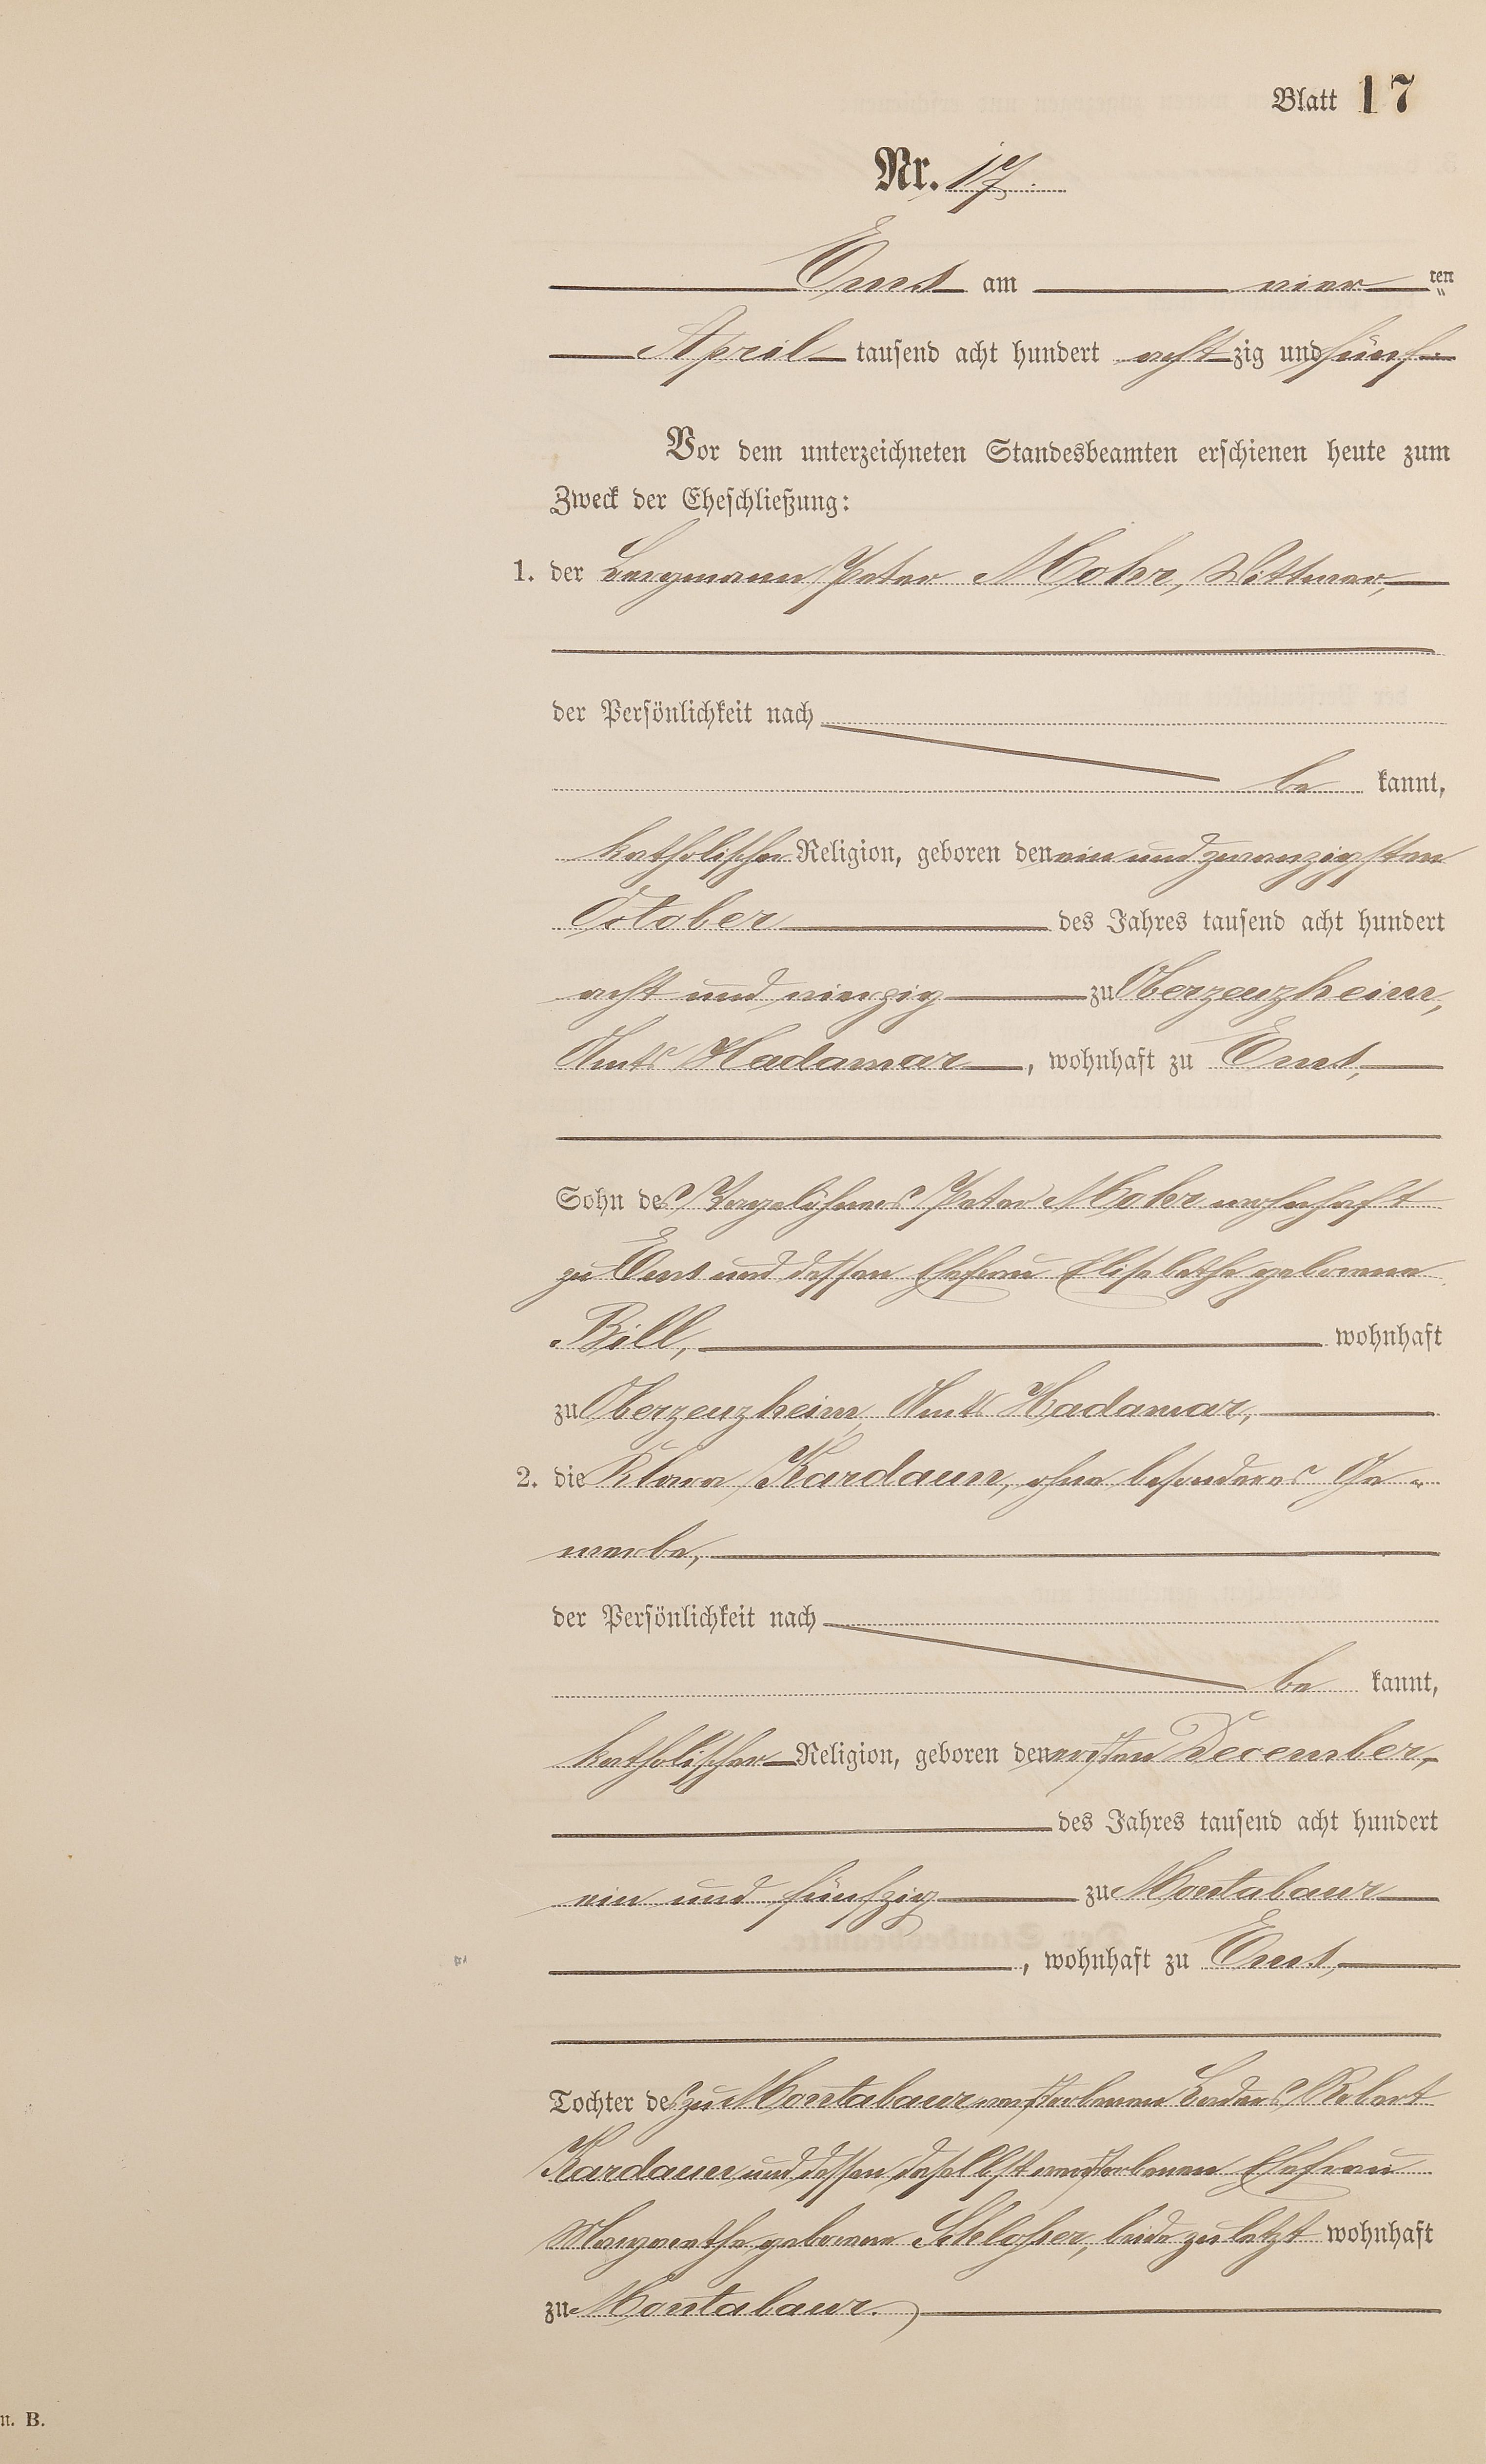 Blatt 17
Nr. 17.
Ems am vier ten
April tausend acht hundert achtzig und fünf.
Vor dem unterzeichneten Standesbeamten erschienen heute zum
Zweck der Eheschließung:
1. der Bergmann Peter Mohr, Wittwer,
der Persönlichkeit nach
be kannt,
katholischer Religion, geboren den ein und zwanzigsten
October des Jahres tausend acht hundert
acht und vierzig zu Oberzeuzheim,
Amts Hadamar, wohnhaft zu Ems,
Sohn des Tagelöhners Peter Mohr wohnhaft
zu Ems und dessen Ehefrau Elisabethe geborene
Bill, wohnhaft
zu Oberzeuzheim, Amts Hadamar,
2. die Klara Kardaun, ohne besonderes Ge-
werbe,
der Persönlichkeit nach
be kannt,
katholischer Religion, geboren den ersten December,
des Jahres tausend acht hundert
ein und fünfzig zu Montabaur
, wohnhaft zu Ems,
Tochter des zu Montabaur verstorbenen Robert
Kardaun und dessen daselbst verstorbenen Ehefrau
Margarethe geborene Schlosser, beide zuletzt wohnhaft
zu Montabaur.
n. B.